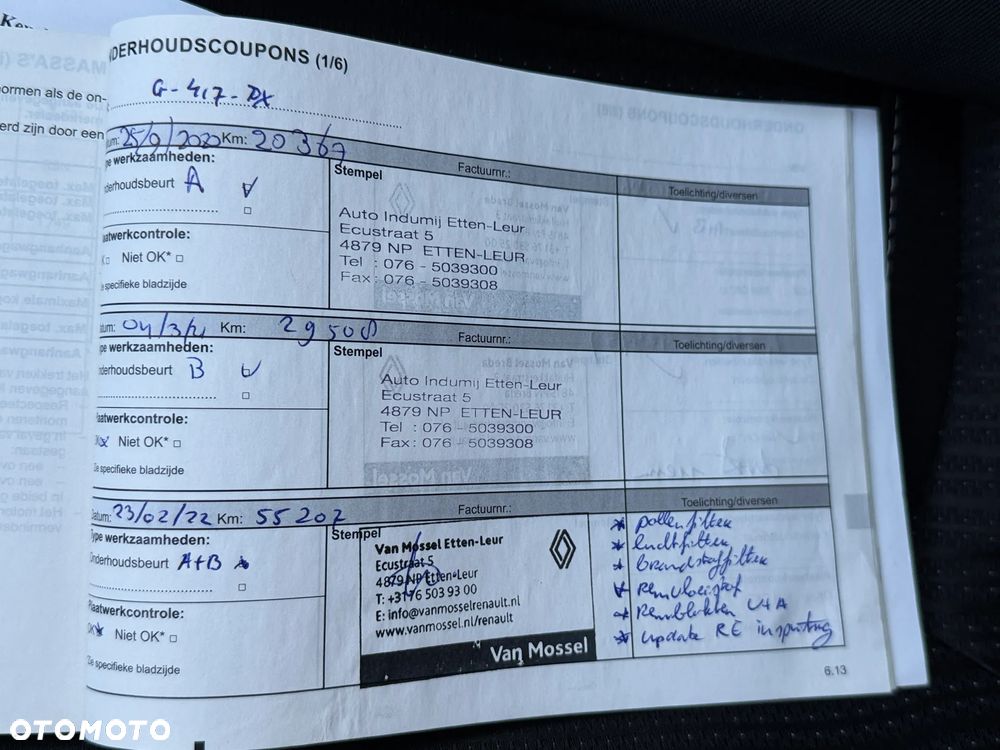 ormen als de on-
erd zijn door een
DERHOUDSCOUPONS (1/6)
G-417-DX
tum: 25/9/2020 Km: 20367
Factuurnr.:
Toelichting/diversen
pe werkzaamheden:
derhoudsbeurt A
Stempel
Auto Indumij Etten-Leur
Ecustraat 5
4879 NP ETTEN-LEUR
Tel : 076 - 5039300
Fax : 076 - 5039308
aatwerkcontrole:
Niet OK*
e specifieke bladzijde
tum: 04/3/21 Km: 29508
Factuurnr.:
Toelichting/diversen
ype werkzaamheden:
nderhoudsbeurt B
Stempel
Auto Indumij Etten-Leur
Ecustraat 5
4879 NP ETTEN-LEUR
Tel : 076 - 5039300
Fax : 076 - 5039308
laatwerkcontrole:
Niet OK*
Zie specifieke bladzijde
Datum: 23/02/22 Km: 55207
Factuurnr.:
Toelichting/diversen
Type werkzaamheden:
Onderhoudsbeurt A+B
Stempel
Van Mossel Etten-Leur
Ecustraat 5
4879 NP Etten-Leur
T: +3176 503 93 00
E: info@vanmosselrenault.nl
www.vanmossel.nl/renault
Van Mossel
* pollenfilter
* luchtfilter
* brandstoffilter
* remvloeistof
* Remblokken V+A
* update RE inspuiting
Plaatwerkcontrole:
OK* Niet OK*
Zie specifieke bladzijde
6.13
OTOMOTO